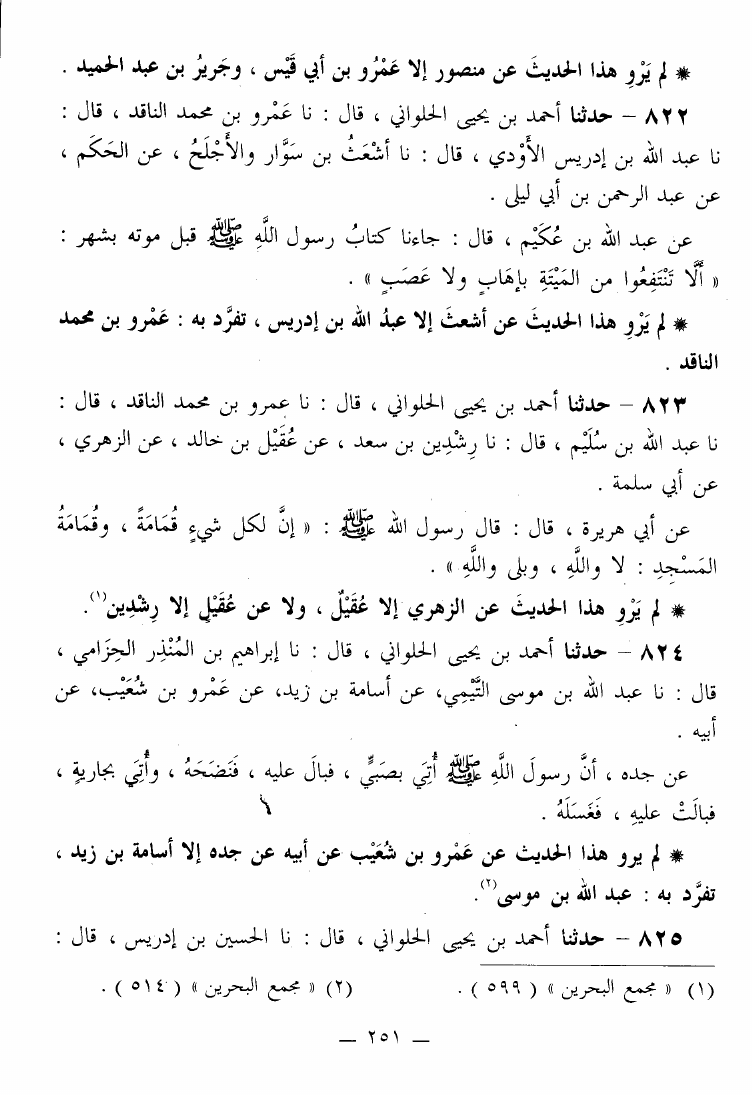 * لم يَرْوِ هذا الحديثَ عن منصور إلا عَمْرُو بن أبي قَيْس ، وجَريرُ بن عبد الحميد .
٨٢٢ – حدثنا أحمد بن يحيى الحلواني ، قال : نا عَمْرو بن محمد الناقد ، قال :
نا عبد الله بن إدريس الأَوْدي ، قال : نا أشْعَثُ بن سَوَّار والأَجْلَحُ ، عن الحَكَم ،
عن عبد الرحمن بن أبي ليلى .
عن عبد الله بن عُكَيْم ، قال : جاءنا كتابُ رسول اللَّهِ ﷺ قبل موته بشهر :
« أَلَّا تَنْتَفِعُوا من المَيْتَةِ بإهَابٍ ولا عَصَبٍ » .
* لم يَرْوِ هذا الحديثَ عن أشعثَ إلا عبدُ الله بن إدريس ، تفرَّد به : عَمْرو بن محمد
الناقد .
٨٢٣ – حدثنا أحمد بن يحيى الحلواني ، قال : نا عمرو بن محمد الناقد ، قال :
نا عبد الله بن سُلَيْم ، قال : نا رِشْدِين بن سعد ، عن عُقَيْل بن خالد ، عن الزهري ،
عن أبي سلمة .
عن أبي هريرة ، قال : قال رسول الله ﷺ : « إنَّ لكل شيءٍ قُمَامَةً ، وقُمَامَةُ
المَسْجِدِ : لا واللَّهِ ، وبلى واللَّهِ » .
* لم يَرْوِ هذا الحديثَ عن الزهري إلا عُقَيْلٌ ، ولا عن عُقَيْلٍ إلا رِشْدِين(١).
٨٢٤ – حدثنا أحمد بن يحيى الحلواني ، قال : نا إبراهيم بن المُنْذِر الحِزَامي ،
قال : نا عبد الله بن موسى التَّيْمِي، عن أسامة بن زيد، عن عَمْرو بن شُعَيْب، عن
أبيه .
عن جده ، أنَّ رسولَ اللَّهِ ﷺ أُتِيَ بصَبيٍّ ، فبالَ عليه ، فَنَضَحَهُ ، وأُتِيَ بجاريةٍ ،
فبالَتْ عليهِ ، فَغَسَلَهُ .
* لم يرو هذا الحديث عن عَمْرو بن شُعَيْب عن أبيه عن جده إلا أسامة بن زيد ،
تفرَّد به : عبد الله بن موسى(٢).
٨٢٥ – حدثنا أحمد بن يحيى الحلواني ، قال : نا الحسين بن إدريس ، قال :
(١) « مجمع البحرين » ( ٥٩٩ ) . (٢) « مجمع البحرين » ( ٥١٤ ) .
— ٢٥١ —